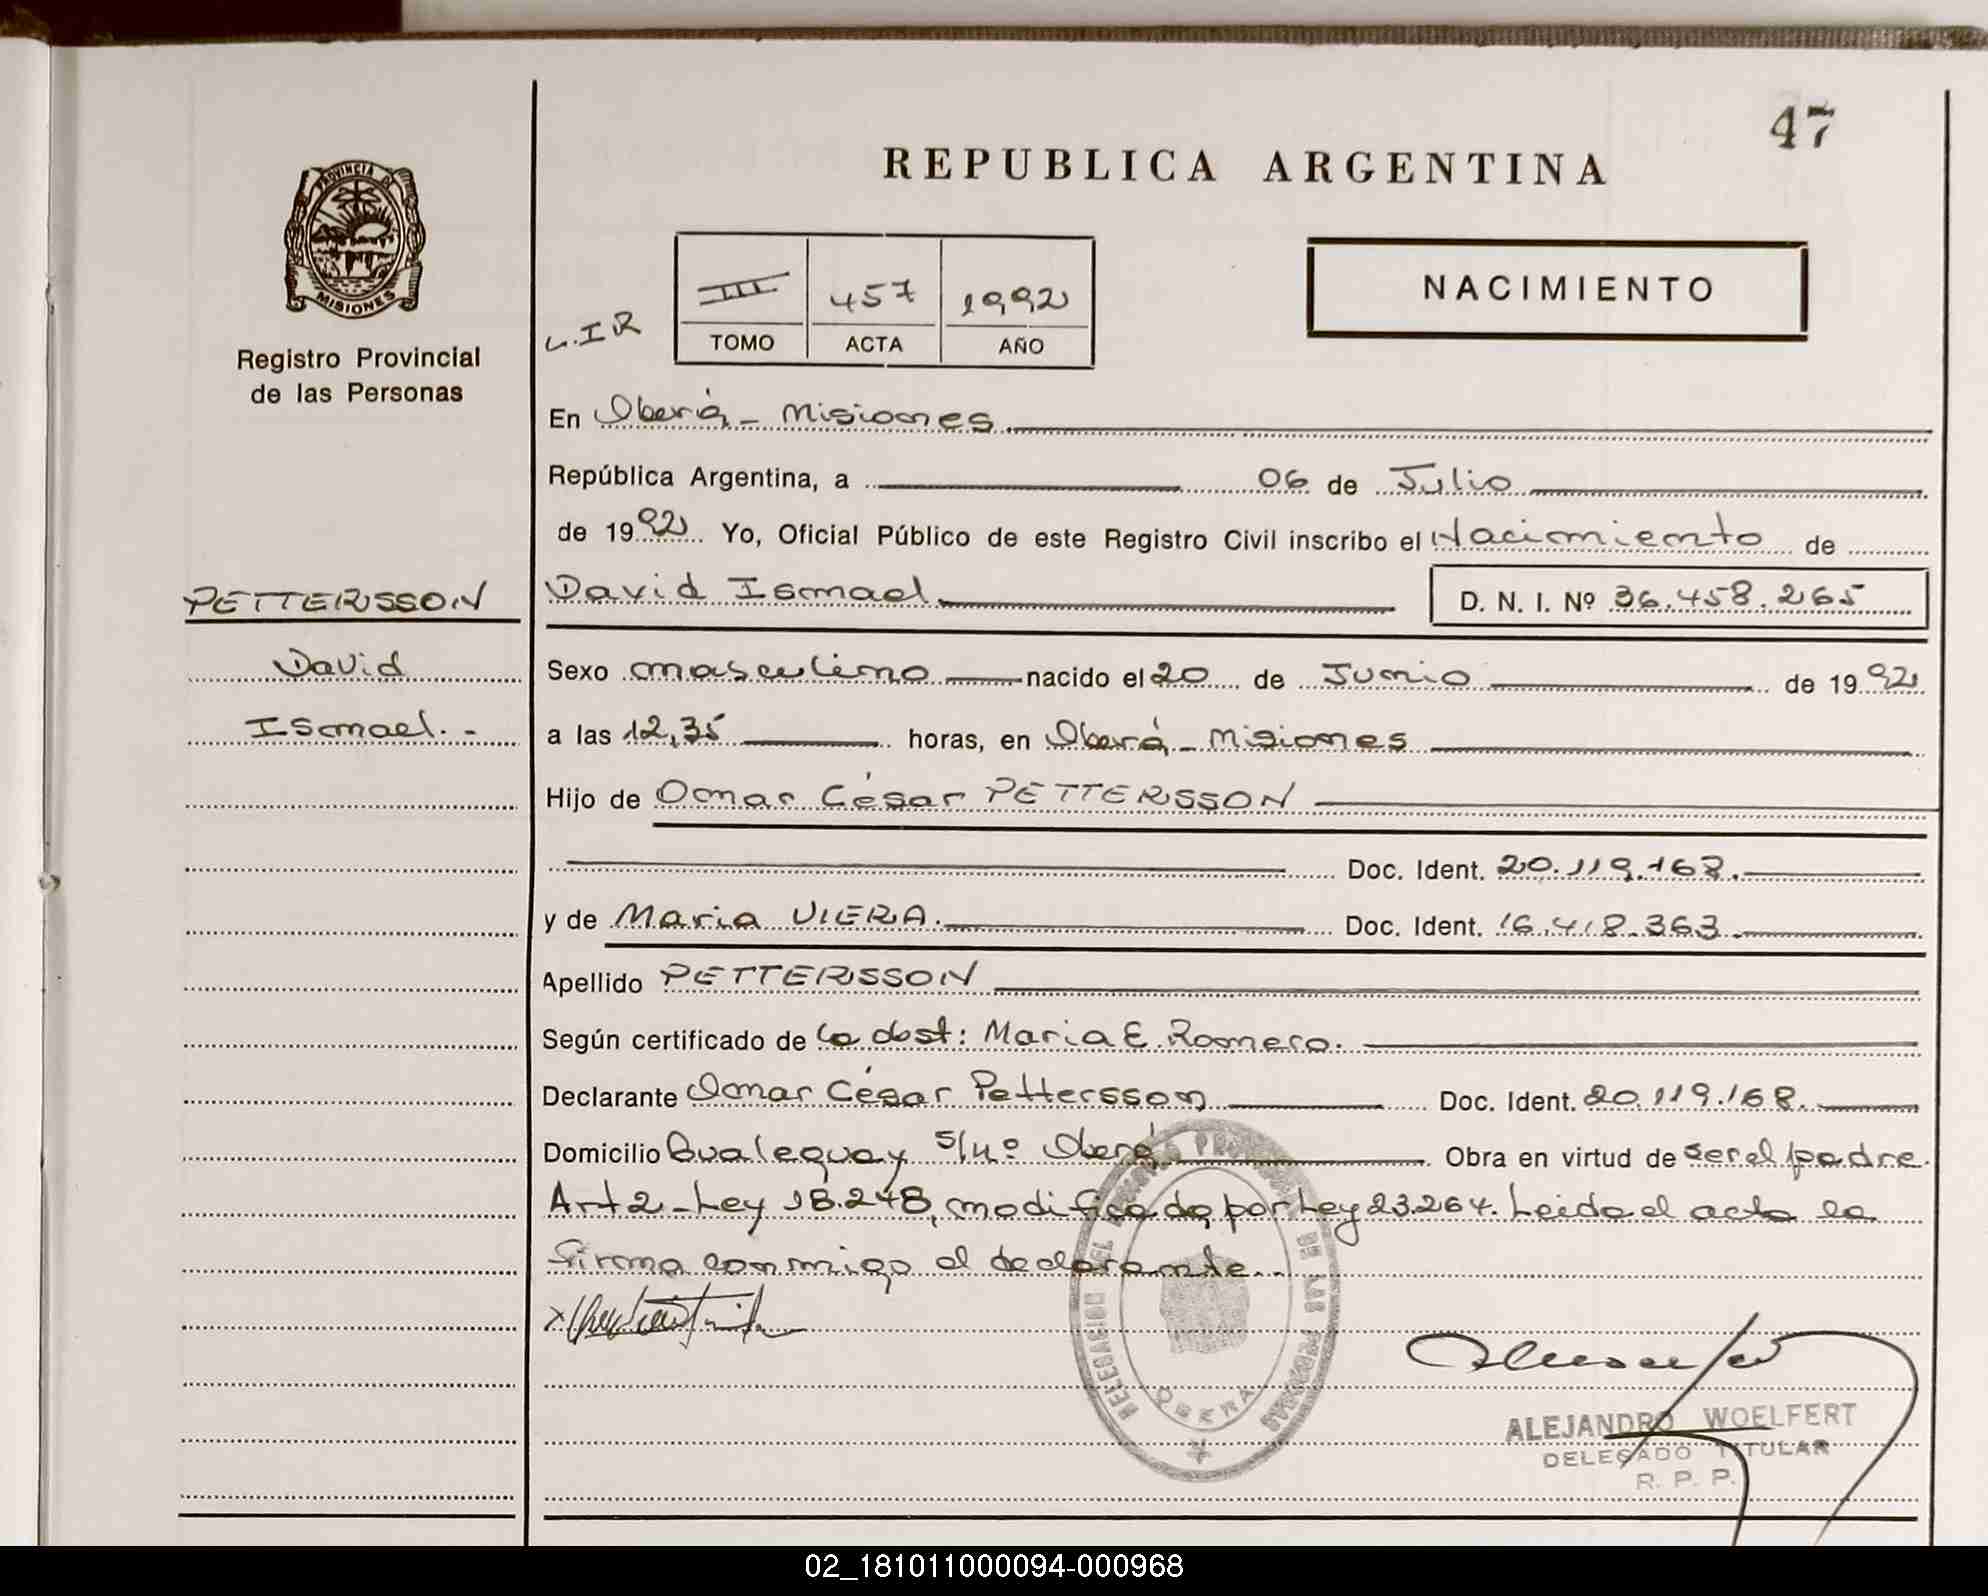 47
REPUBLICA ARGENTINA
PROVINCIA DE
MISIONES
Registro Provincial
de las Personas
NACIMIENTO
L.I.R
III 457 1992
TOMO ACTA AÑO
En Oberá - Misiones
República Argentina, a 06 de Julio
de 1992. Yo, Oficial Público de este Registro Civil inscribo el Nacimiento de
PETTERSSON
David
Ismael.-
David Ismael D. N. I. Nº 36.458.265
Sexo masculino nacido el 20 de Junio de 1992
a las 12,35 horas, en Oberá - Misiones
Hijo de Omar César PETTERSSON
Doc. Ident. 20.119.168.
y de Maria VIERA. Doc. Ident. 16.418.363.
Apellido PETTERSSON
Según certificado de la obst: Maria E. Romero.
Declarante Omar César Pettersson Doc. Ident. 20.119.168.
Domicilio Gualeguay s/nº Oberá Obra en virtud de ser el padre.
Art 2 - Ley 18.248, modificado por Ley 23.264. Leida el acta la
firma conmigo el declarante..
DELEGACION DEL REGISTRO PROVINCIAL DE LAS PERSONAS
OBERA
ALEJANDRO WOELFERT
DELEGADO TITULAR
R. P. P.
02_181011000094-000968